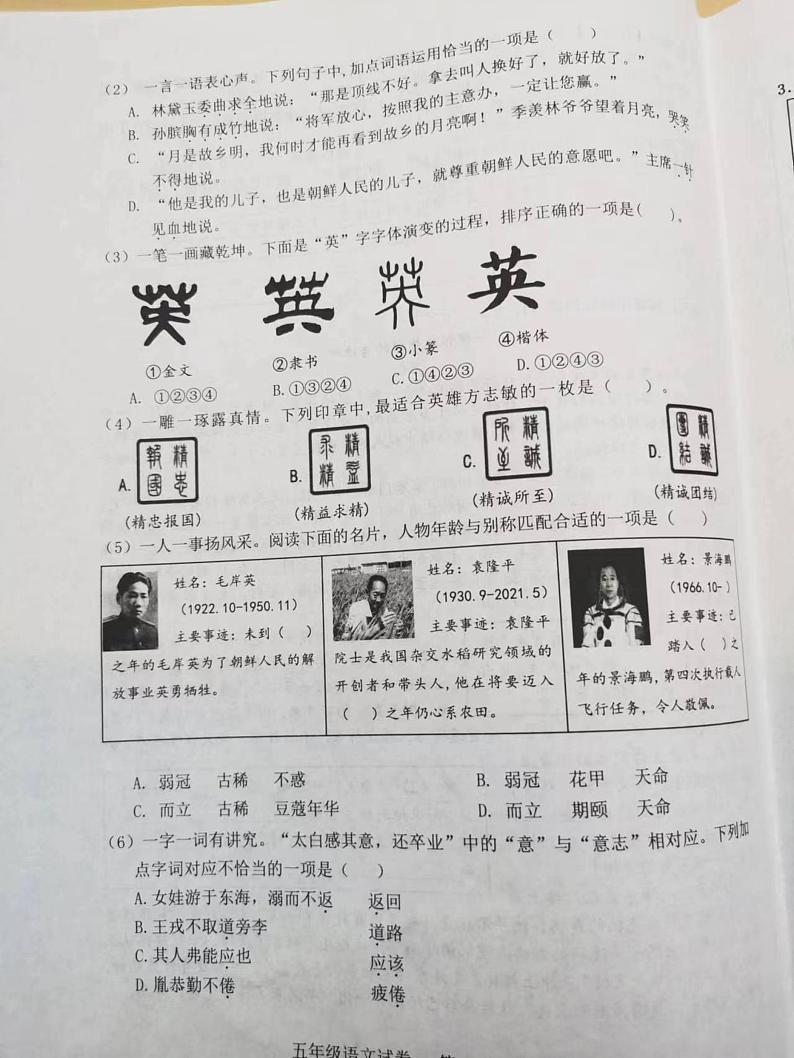 (2) 一言一语表心声。下列句子中,加点词语运用恰当的一项是（ ）
A. 林黛玉委曲求全地说：“那是顶线不好。拿去叫人换好了，就好放了。”
B. 孙膑胸有成竹地说：“将军放心，按照我的主意办，一定让您赢。”
C. “月是故乡明，我何时才能再看到故乡的月亮啊！”季羡林爷爷望着月亮，哭笑
不得地说。
D. “他是我的儿子，也是朝鲜人民的儿子，就尊重朝鲜人民的意愿吧。”主席一针
见血地说。
(3) 一笔一画藏乾坤。下面是“英”字字体演变的过程，排序正确的一项是( )。
英 英 英 英
①金文 ②隶书 ③小篆 ④楷体
A. ①②③④ B.①③②④ C.①④②③ D.①②④③
(4) 一雕一琢露真情。下列印章中,最适合英雄方志敏的一枚是（ ）。
A. 精忠报国 B. 精益求精 C. 精誠所至 D. 精誠團結
(精忠报国) (精益求精) (精诚所至) (精诚团结)
(5) 一人一事扬风采。阅读下面的名片，人物年龄与别称匹配合适的一项是（ ）
姓名：毛岸英
（1922.10-1950.11）
主要事迹：未到（ ）
之年的毛岸英为了朝鲜人民的解
放事业英勇牺牲。
姓名：袁隆平
（1930.9-2021.5）
主要事迹：袁隆平
院士是我国杂交水稻研究领域的
开创者和带头人,他在将要迈入
（ ）之年仍心系农田。
姓名：景海鹏
（1966.10- ）
主要事迹：已
踏入（ ）之
年的景海鹏,第四次执行载人
飞行任务，令人敬佩。
A. 弱冠 古稀 不惑 B. 弱冠 花甲 天命
C. 而立 古稀 豆蔻年华 D. 而立 期颐 天命
(6) 一字一词有讲究。“太白感其意，还卒业”中的“意”与“意志”相对应。下列加
点字词对应不恰当的一项是（ ）
A.女娃游于东海，溺而不返 返回
B.王戎不取道旁李 道路
C.其人弗能应也 应该
D.胤恭勤不倦 疲倦
五年级语文试卷 第
3.